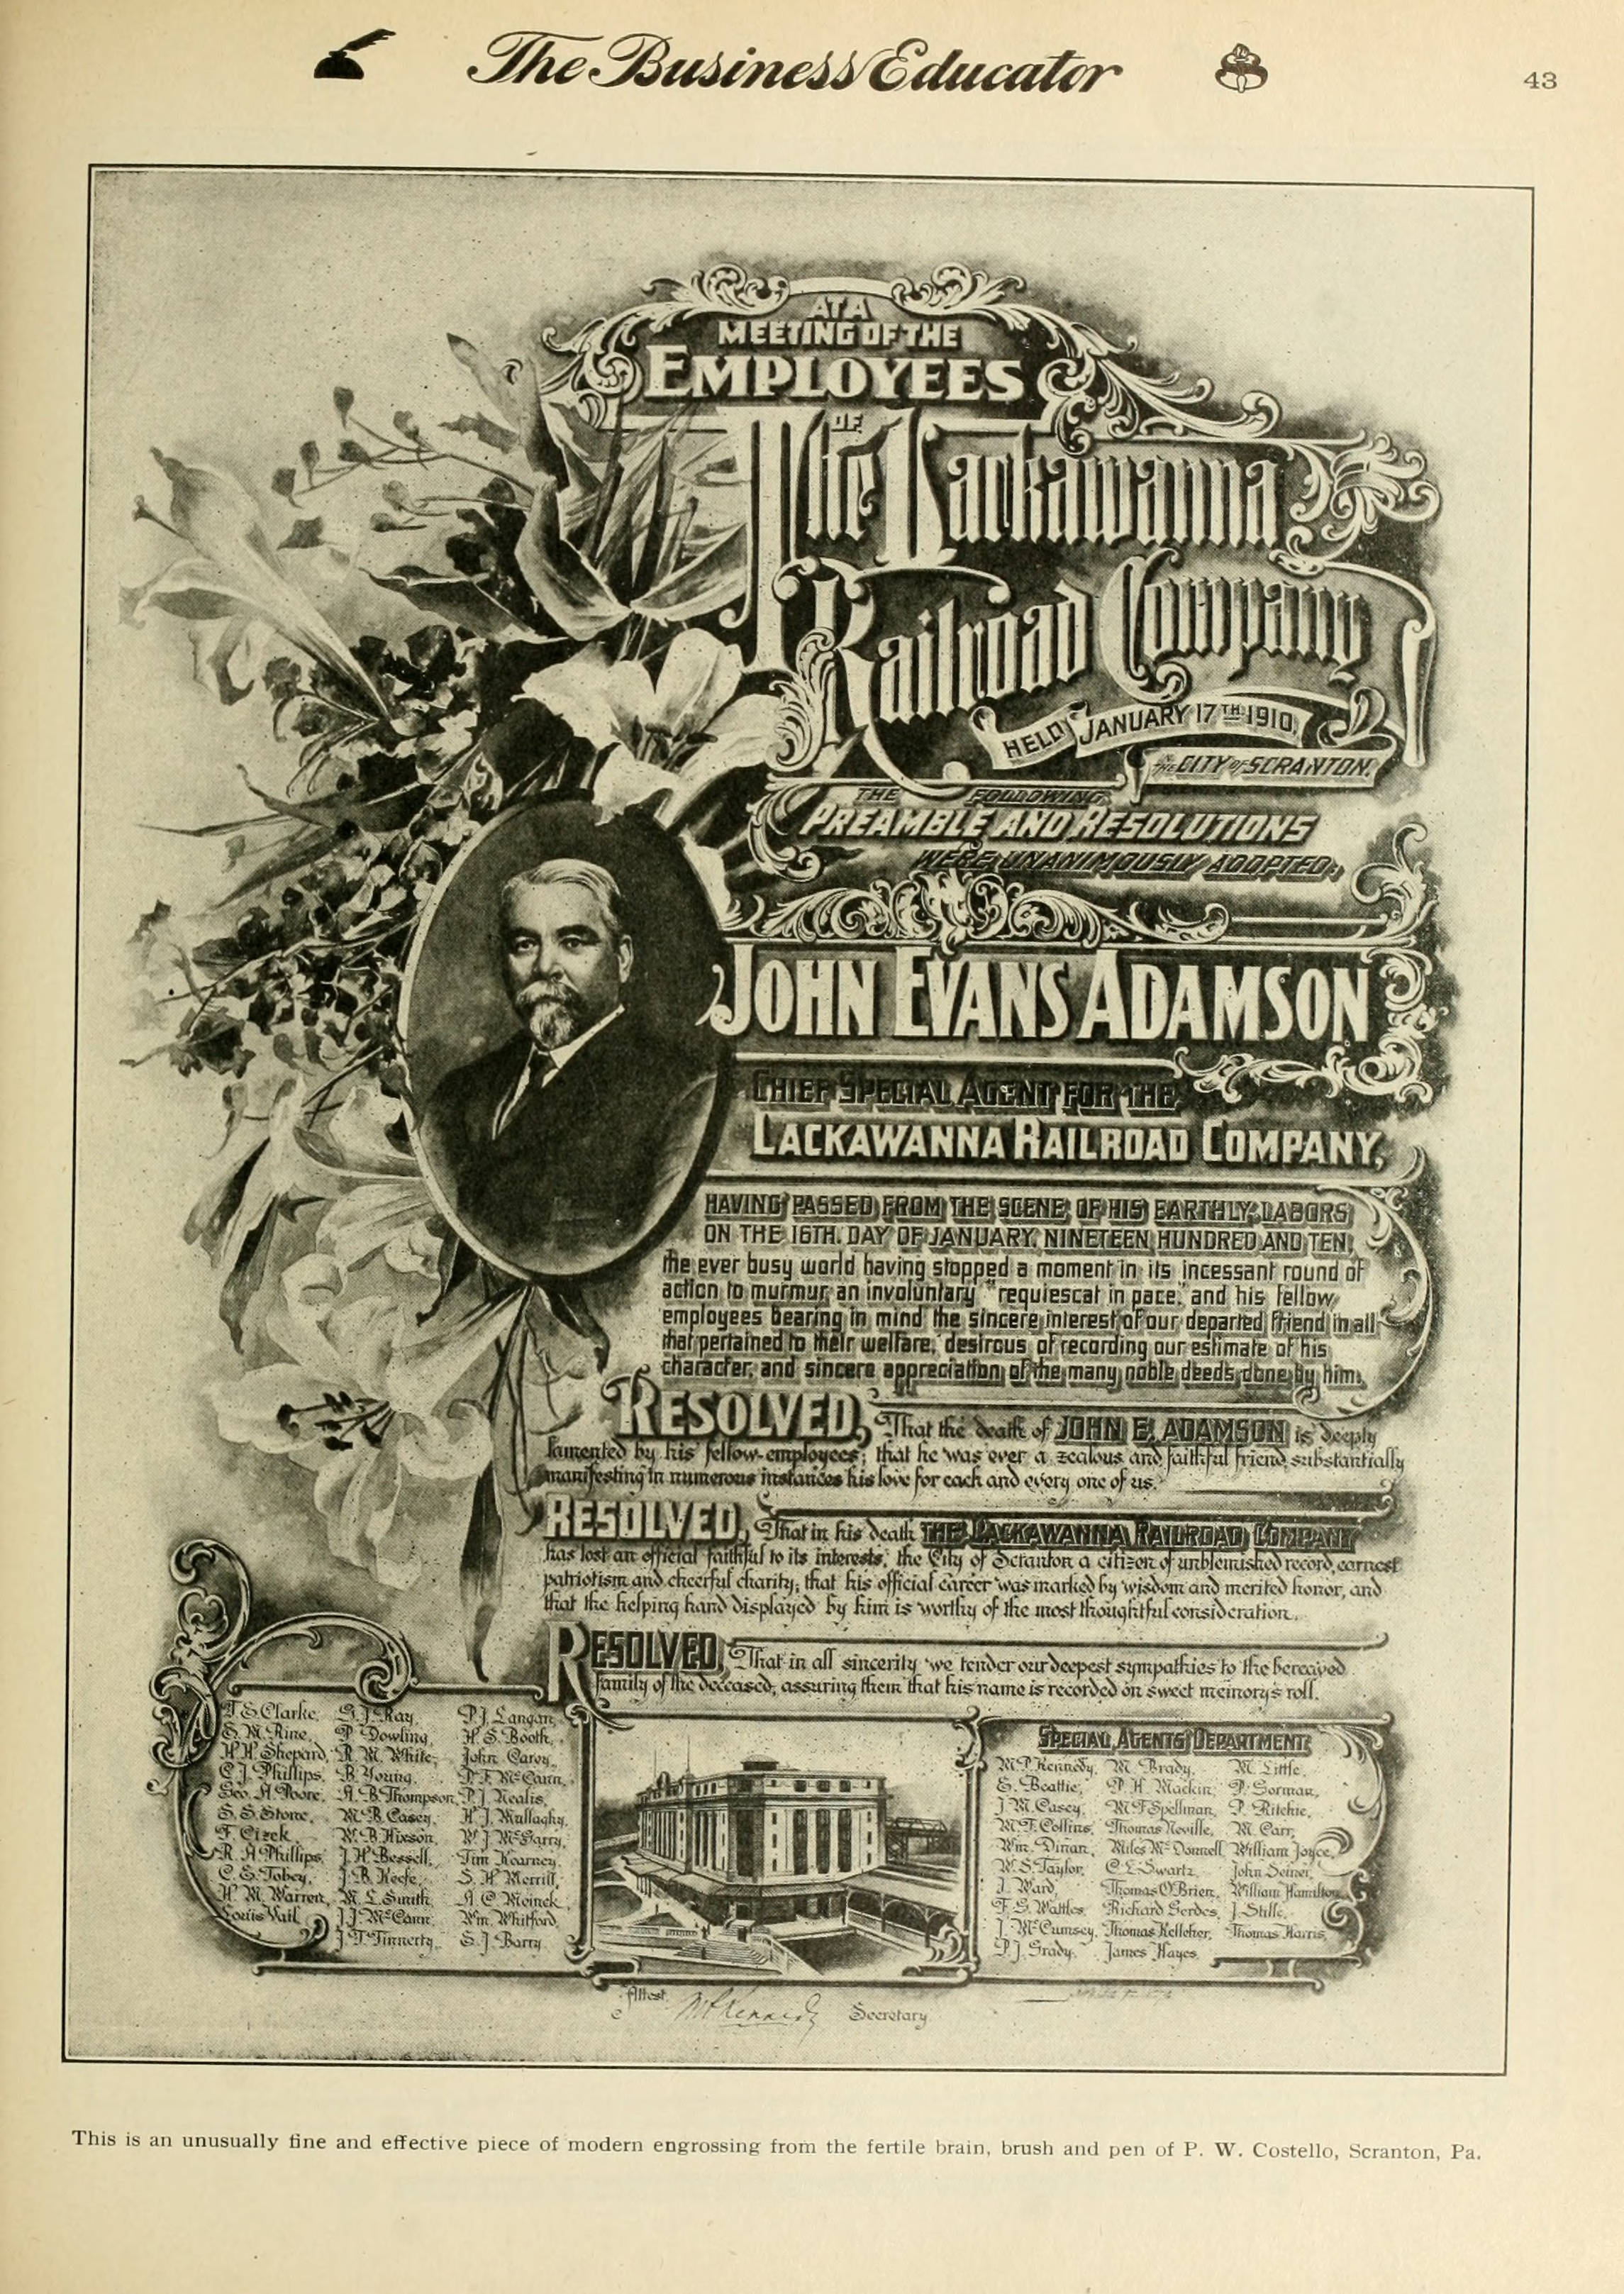 The Business Educator
43
AT A
MEETING OF THE
EMPLOYEES
OF
The Lackawanna
Railroad Company
HELD JANUARY 17TH 1910,
IN THE CITY OF SCRANTON,
THE FOLLOWING
PREAMBLE AND RESOLUTIONS
WERE UNANIMOUSLY ADOPTED,
JOHN EVANS ADAMSON
CHIEF SPECIAL AGENT FOR THE
LACKAWANNA RAILROAD COMPANY,
HAVING PASSED FROM THE SCENE OF HIS EARTHLY LABORS
ON THE 16TH. DAY OF JANUARY, NINETEEN HUNDRED AND TEN,
the ever busy world having stopped a moment in its incessant round of
action to murmur an involuntary "requiescat in pace," and his fellow
employees bearing in mind the sincere interest of our departed friend in all
that pertained to their welfare, desirous of recording our estimate of his
character, and sincere appreciation of the many noble deeds done by him,
RESOLVED, That the death of JOHN E. ADAMSON is deeply
lamented by his fellow-employees; that he was ever a zealous and faithful friend, substantially
manifesting in numerous instances his love for each and every one of us.
RESOLVED, That in his death THE LACKAWANNA RAILROAD COMPANY
has lost an official faithful to its interests, the City of Scranton a citizen of unblemished record, earnest
patriotism and cheerful charity; that his official career was marked by wisdom and merited honor, and
that the helping hand displayed by him is worthy of the most thoughtful consideration.
RESOLVED, That in all sincerity we tender our deepest sympathies to the bereaved
family of the deceased, assuring them that his name is recorded on sweet memory's roll.
T. S. Clarke, G. J. Ray, P. J. Langan,
E. M. Rine, P. Dowling, H. S. Booth,
H. H. Shepard, R. M. White, John Carey,
C. J. Phillips, B. Young, P. F. McCann,
Geo. A. Poore, A. B. Thompson, P. J. Nealis,
S. S. Stone, M. B. Casey, H. J. Mullaghy,
F. Cizek, W. B. Hixson, W. J. McGarry,
R. A. Phillips, J. H. Bessell, Tim Kearney,
C. E. Tobey, J. B. Keefe, S. H. Merrill,
H. M. Warren, M. L. Smith, A. C. Meinek,
Louis Vail, J. J. McCann, Wm. Whitford,
J. T. Finnerty, S. J. Barry.
SPECIAL AGENTS DEPARTMENT
M. P. Kennedy, M. Brady, M. Little,
E. Beattie, P. H. Mackin, P. Gorman,
J. M. Casey, M. F. Spellman, P. Ritchie,
M. F. Collins, Thomas Neville, M. Carr,
Wm. Dinan, Miles McDonnell, William Joyce,
W. S. Taylor, C. E. Swartz, John Seiner,
J. Ward, Thomas O'Brien, William Hamilton,
F. G. Wattles, Richard Gerdes, J. Stille,
J. McCumsey, Thomas Kelleher, Thomas Harris,
P. J. Grady, James Hayes,
Attest. M P Kennedy Secretary
This is an unusually fine and effective piece of modern engrossing from the fertile brain, brush and pen of P. W. Costello, Scranton, Pa.